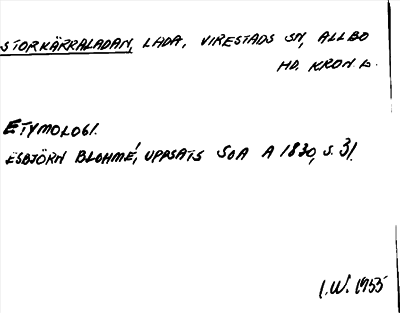 STORKÄRRALADAN, LADA, VIRESTADS SN, ALLBO
HD. KRON. L.
ETYMOLOGI.
ESBJÖRN BLOHMÉ, UPPSATS SOA A 1830, S. 31.
I.W. 1955